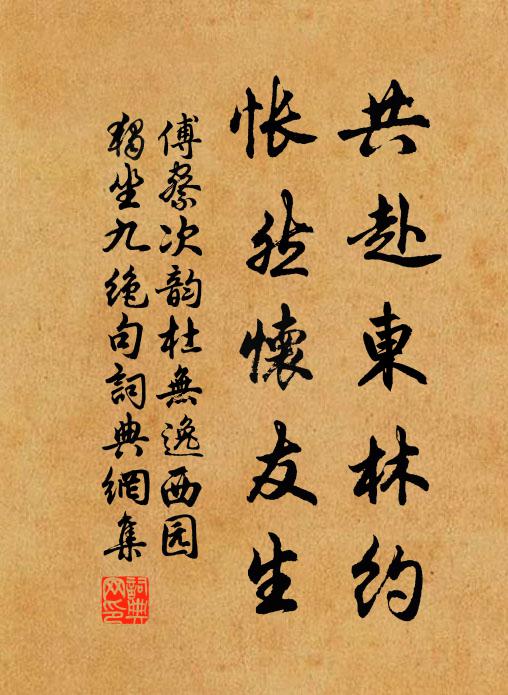 共赴東林約
悵然懷友生
傅察次韵杜無逸西园
獨坐九絶句詞典網集
詞典
网印